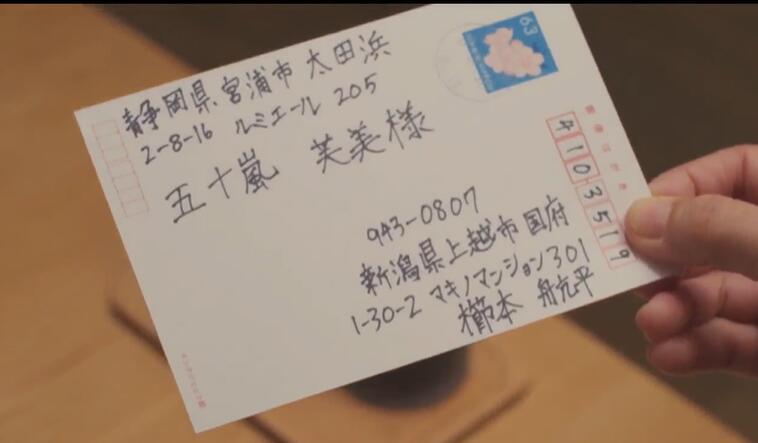 静岡県宮浦市太田浜
2-8-16 ルミエール 205
五十嵐 芙美様
63
郵便はがき
4103519
943-0807
新潟県上越市国府
1-30-2 マキノマンション301
櫛本 舟亢平